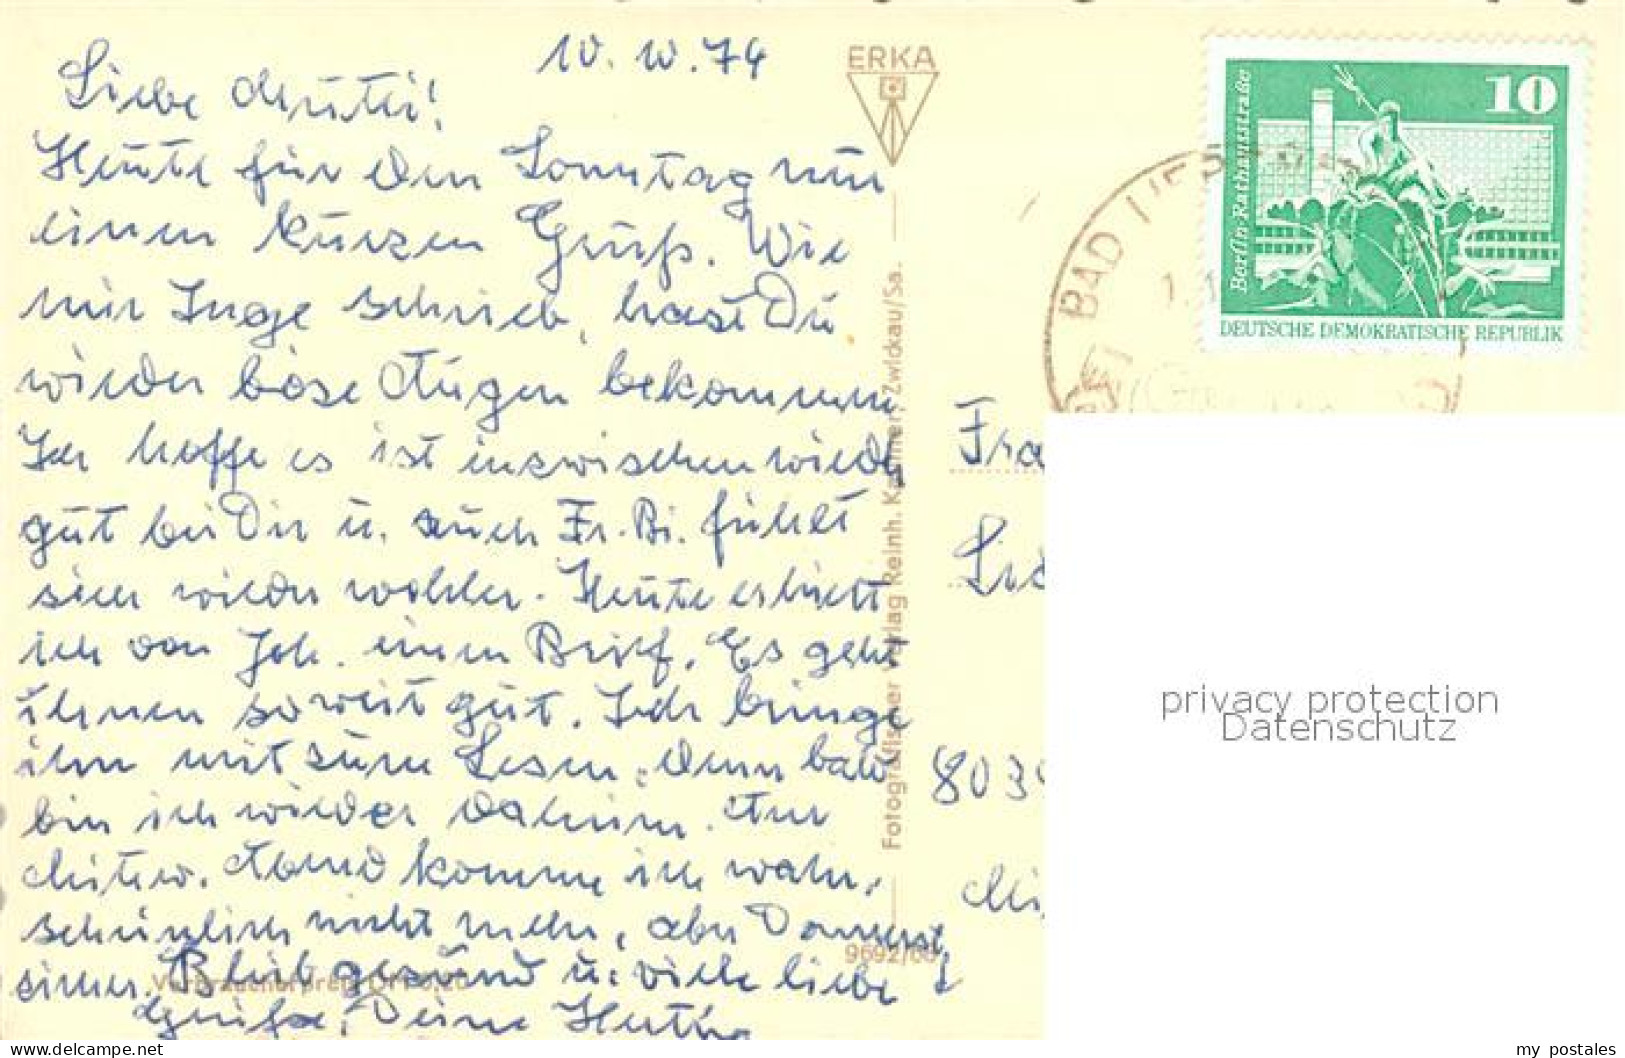 10. 10. 74
Liebe Mutti!
Heute für den Sonntag nur
einen kurzen Gruß. Wie
mir Inge schrieb, hast Du
wieder böse Augen bekommen
Ich hoffe es ist inzwischen wieder
gut bei Dir u. auch Fr. Bi. fühlt
sich wieder wohler. Heute erhielt
ich von Joh. einen Brief. Es geht
ihnen soweit gut. Ich bringe
ihn mit zum Lesen, denn bald
bin ich wieder daheim. Am
Mittw. Abend komme ich wahr-
scheinlich nicht mehr, aber Donnerst.
sicher. Bleib gesund u. viele liebe
Grüße, Deine
ERKA
Fotografischer Verlag Reinh. Kallmer, Zwickau/Sa.
9692/68
Verbraucherpreis
10
Berlin-Rathausstraße
DEUTSCHE DEMOKRATISCHE REPUBLIK
BAD
Fra
8039
privacy protection
Datenschutz
delcampe.net
my_postales